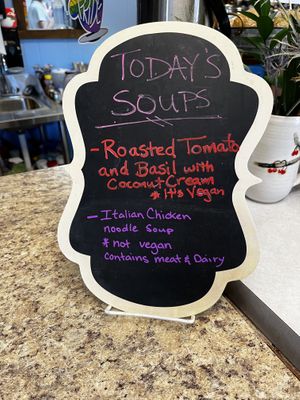 TODAY'S
SOUPS
- Roasted Tomato
and Basil with
Coconut Cream
* It's Vegan
- Italian Chicken
noodle Soup
* not vegan
contains meat & Dairy